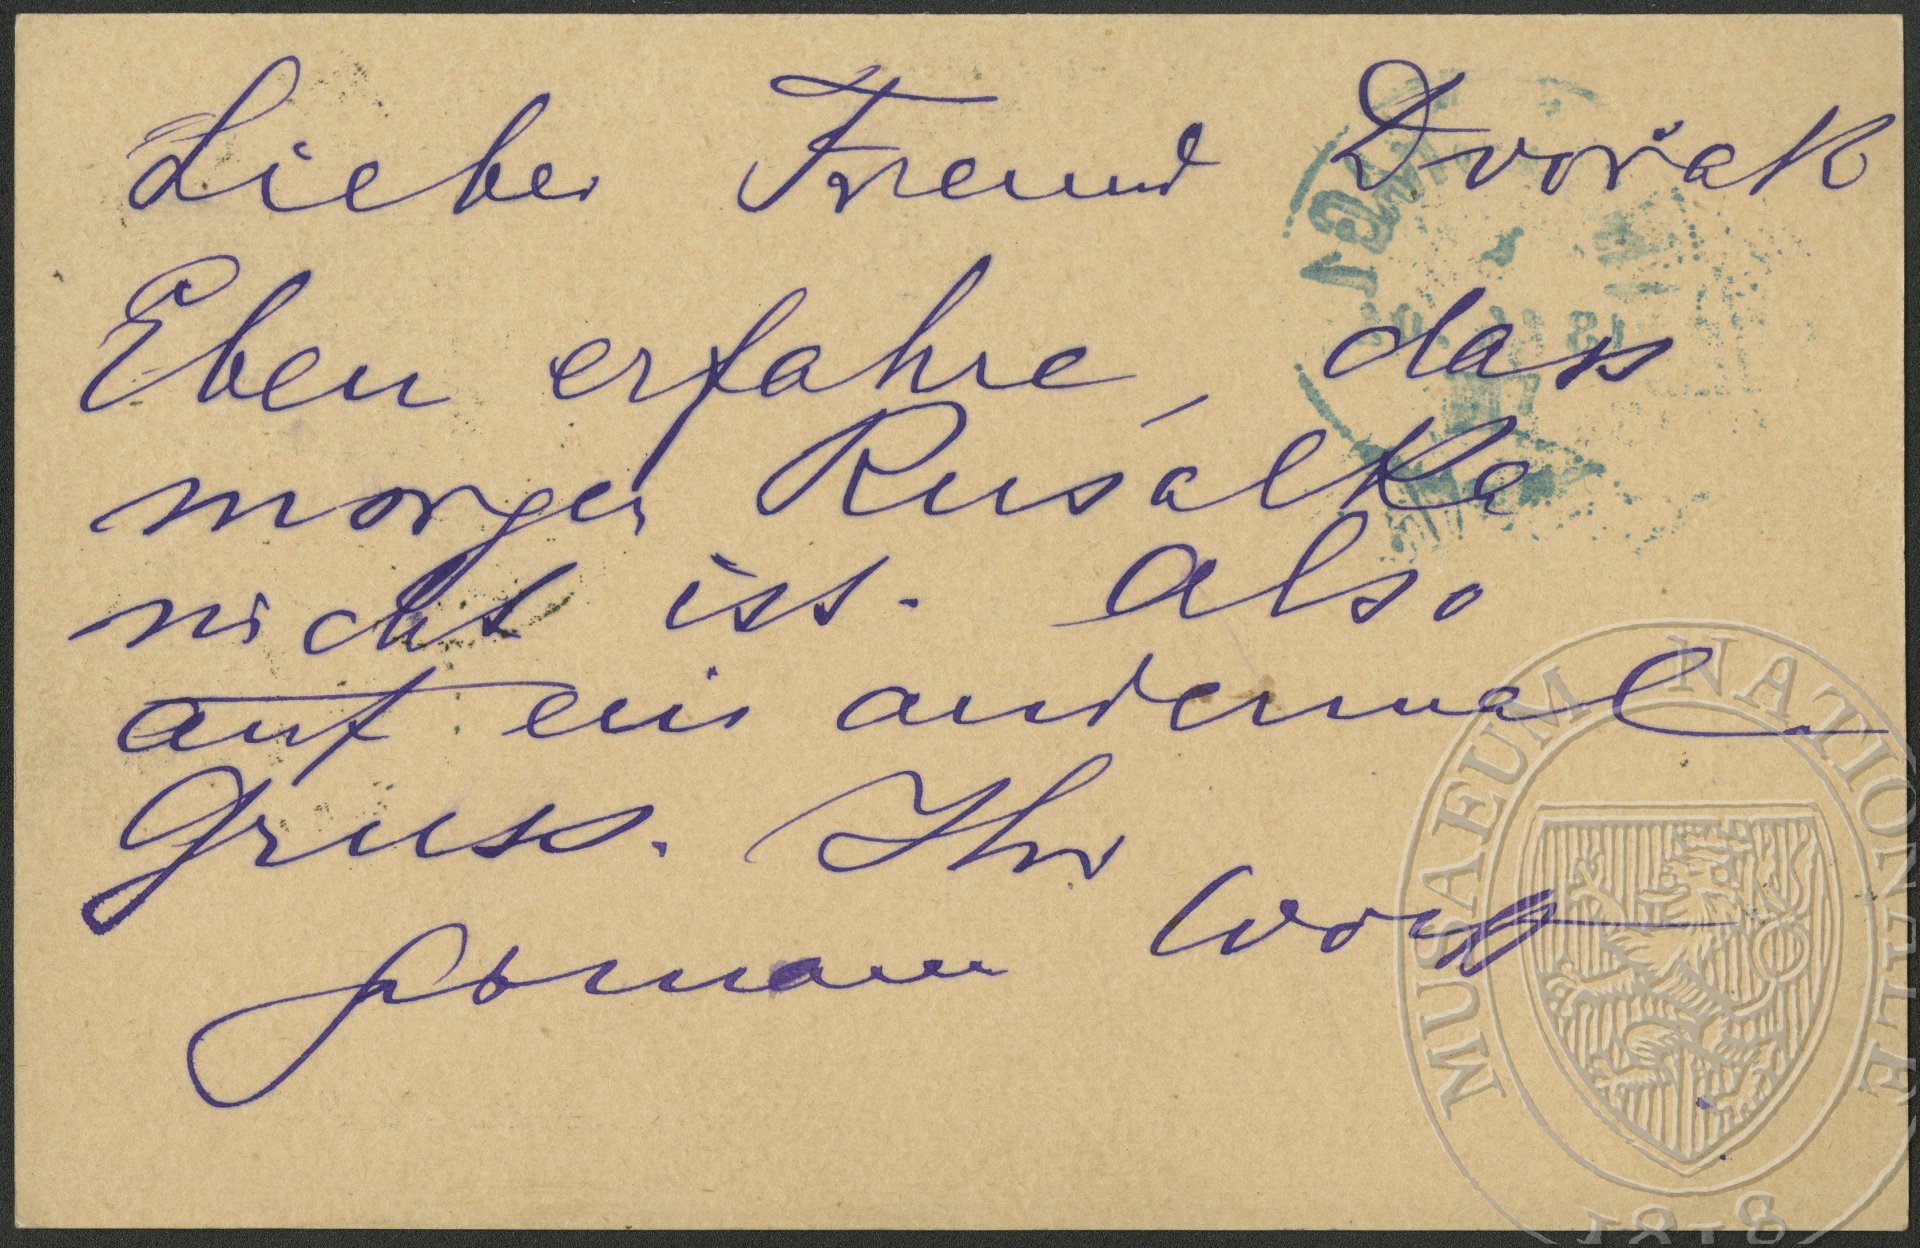 Lieber Freund Dvořak
Eben erfahre, dass
morgen Rusálka
nicht ist. Also
auf ein andermal
Gruss. Ihr
MUSAEUM NATIONALE
1818